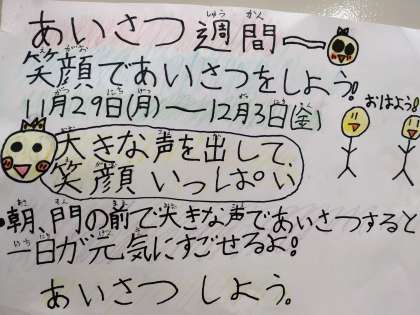 あいさつ週間
笑顔であいさつをしよう!
11月29日(月)―12月3日(金)
おはよう!
大きな声を出して、
笑顔いっぱい
・朝、門の前で大きな声であいさつすると
一日が元気にすごせるよ!
あいさつしよう。